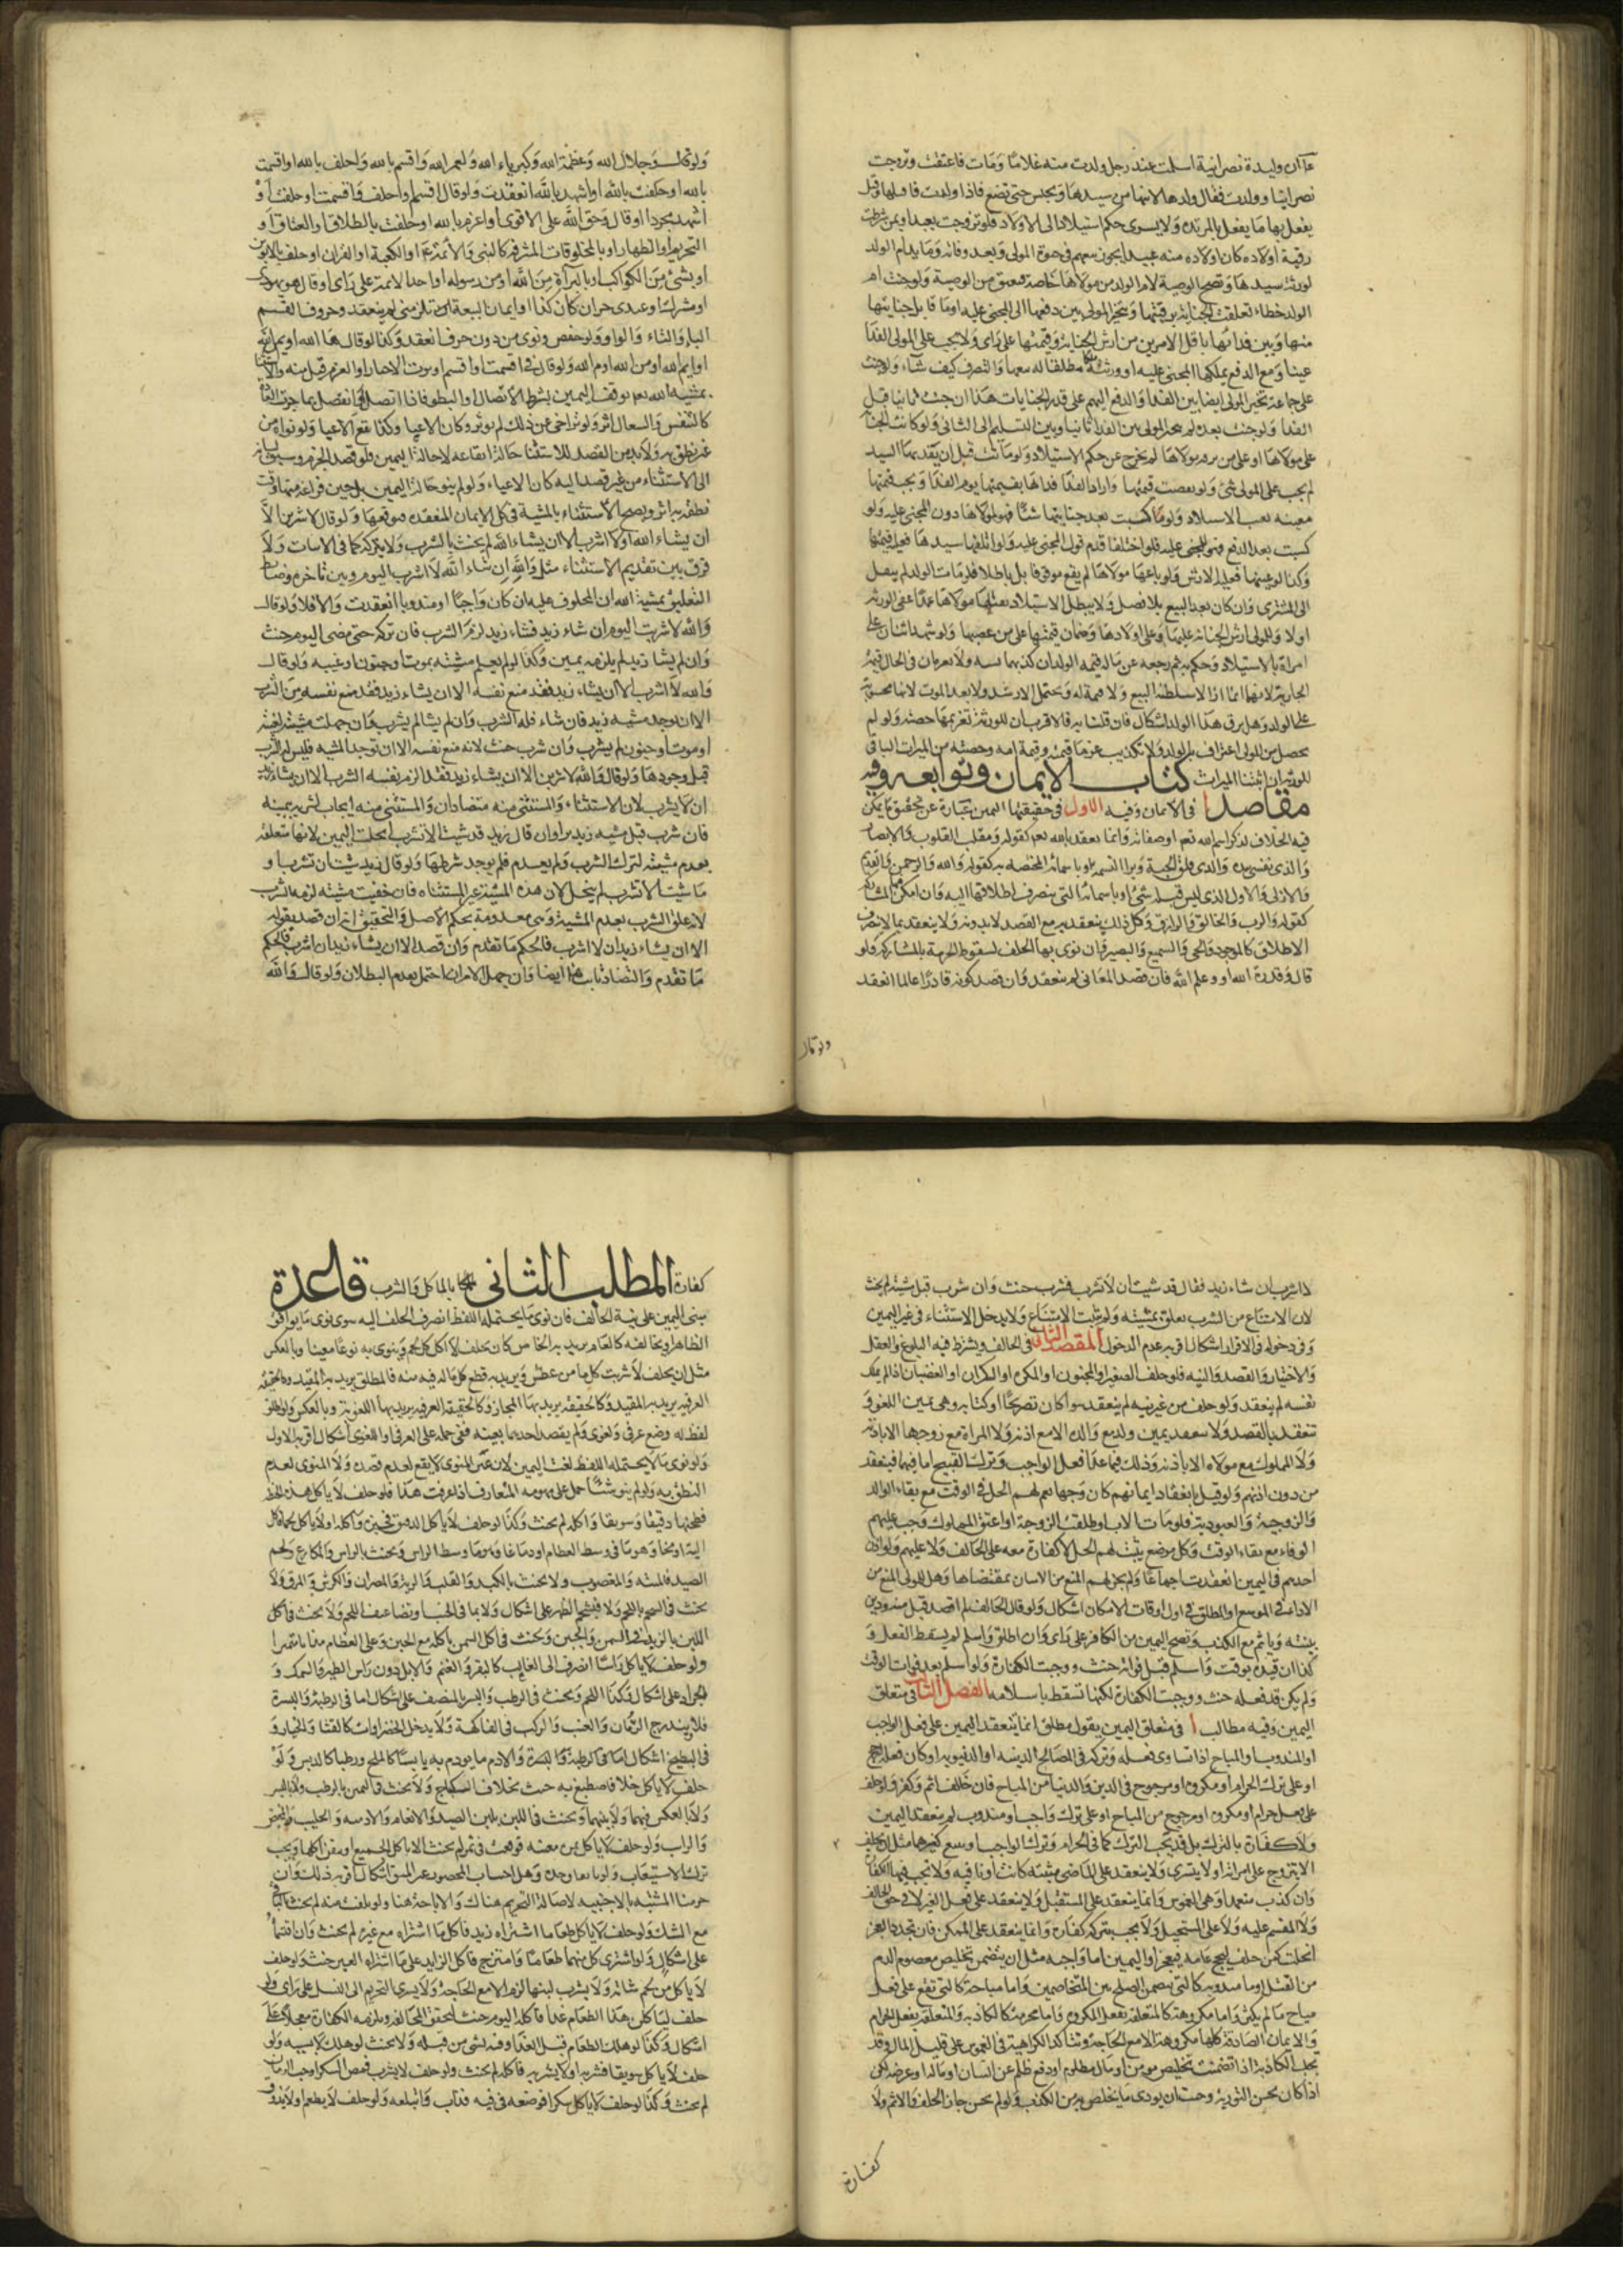 ع أن وليدة نصرانية اسلمت عند رجل وولدت منه غلاما ومات فاعتقت وتزوجت
نصرانيا وولدت فقال ولدها لابنها من سيدها وتحبس حتى تضع فاذا ولدت فاقتلها وقيل
يفعل بها ما يفعل بالمرتدة ولا يسرى حكم الاستيلاد الى الاولاد فلو تزوجت بعبد او بمن شرطت
رقية اولاده كان اولاده منه عبيدا يجوز بيعهم في حيوة المولى وبعد وفاته وما بيد ام الولد
لورثة سيدها وتصح الوصية لام الولد من مولاها خاصة فتعتق من الوصية ولو جنت ام
الولد خطاء تعلقت الجناية برقبتها ويتخير المولى بين دفعها الى المجني عليه او ما قابل جنايتها
منها وبين فدائها باقل الامرين من ارش الجناية وقيمتها على راى ولا يجب على المولى الفدا
عينا ومع الدفع يملكها المجني عليه او ورثته ملكا مطلقا له بيعها والتصرف كيف شاء ولو جنت
على جماعة تخير المولى ايضا بين الفدا والدفع اليهم على قدر الجنايات هذا ان جنت ثانيا قبل
الفدا ولو جنت بعده لم يتخير المولى بين الفدا ثانيا وبين التسليم الى الثاني ولو كانت الجناية
على مولاها او على من يرثه مولاها لم يخرج عن حكم الاستيلاد ولو ماتت قبل ان يفديها السيد
لم يجب على المولى شئ ولو نقصت قيمتها واراد الفدا فداها بقيمتها يوم الفدا ويجب قيمتها
معيبة بعيب الاستيلاد ولو ما كسبت بعد جنايتها شئا فهو لمولاها دون المجني عليه ولو
كسبت بعد الدفع فهو للمجني عليه فلو اختلفا قدم قول المجني عليه ولو اتلفها سيدها فعليه قيمتها
وكذا لو عيبها فعليه الارش ولو باعها مولاها لم يقع موقوفا بل باطلا فلو مات الولد لم ينتقل
الى المشترى وان كان بعد البيع بلا فصل ولا يبطل الاستيلاد بقتلها مولاها عمدا عفى الورثة
اولا وللمولى ارش الجناية عليها وعلى اولادها وضمان قيمتها على من غصبها ولو شهد اثنان على
امراة بالاستيلاد وحكم به ثم رجعا غرما له قيمة الولد ان كذبهما نسبه ولا يغرمان في الحال قيمة
الجارية لانهما انما ازالا سلطنة البيع ولا قيمة له ويحتمل الارش ولا بعد الموت لانها محسوبة
على الولد وهل يرق هذا الولد اشكال فان قلنا به فالاقرب ان للورثة تغريمها حصته ولو لم
يحصل من المولى اعتراف بالولد ولا تكذيب غرما قيمته وقيمة امه وحصته من الميراث الباقي
للورثة ان اثبتنا الميراث كتاب الايمان وتوابعه وفيه
مقاصد ا في الايمان وفيه الاول في حقيقتها اليمين عبارة عن تحقيق ما يمكن
فيه الخلاف لذكر اسم الله تعم او صفاته وانما ينعقد بالله تعم كقوله ومقلب القلوب والابصار
والذى نفسي بيده والذى فلق الحبة وبرا النسمة او باسمائه المختصة به كقوله والله والرحمن والقديم
والازلى والاول الذى ليس قبله شئ او باسمائه التي ينصرف اطلاقها اليه وان امكن المشاركة
كقوله والرب والخالق والرازق وكل ذلك ينعقد به مع القصد لا بدونه ولا ينعقد بما لا ينصرف
الاطلاق كالموجود والحى والسميع والبصير وان نوى بها الحلف لسقوط الحرمة بالمشاركة فلو
قال وقدرة الله او وعلم الله فان قصد المعاني لم ينعقد وان قصد كونه قادرا عالما انعقد
ولو قال
ولو قال وجلال الله وعظمة الله وكبرياء الله ولعمر الله واقسم بالله واحلف بالله او اقسمت
بالله او حلفت بالله او اشهد بالله انعقدت ولو قال اقسم او احلف واقسمت او حلفت او
اشهد مجردا او قال وحق الله على الاقوى او اعزم بالله او حلفت بالطلاق او العتاق او
التحريم او الظهار او بالمخلوقات المشرفة كالنبى والائمة عم او الكعبة او القران او حلف بالابوين
او بشئ من الكواكب او بالبرآة من الله او من رسوله او احد الائمة على راى او قال هو يهودى
او مشرك او عبدى حر ان كان كذا او ايمان البيعة تلزمنى لم ينعقد وحروف القسم
الباء والتاء والواو ولو خفض ونوى من دون حرف انعقد وكذا لو قال ها الله او ايمن الله
او ايم الله او من الله او م الله ولو قال في اقسمت او اقسم اردت الاخبار او العزم قبل منه والاستثنا
بمشية الله تعم يوقف اليمين بشرط الاتصال والنطق فاذا اتصل او انفصل بما جرت العادة
كالتنفس والسعال اثر ولو تراخى من ذلك لم يؤثر وكان لاغيا وكذا يقع لاغيا ولو نواه من
غير نطق به ولا بد من القصد للاستثنا حالة ايقاعه لا حالة اليمين فلو قصد الجزم وسبق لسانه
الى الاستثناء من غير قصد اليه كان لاغيا ولو لم ينو حالة اليمين بل حين فراغه منها وقت
نطقه به اثر ويصح الاستثناء بالمشية في كل الايمان المنعقدة فيوقعها ولو قال لاشربن الا
ان يشاء الله او لا اشرب الا ان يشاء الله لم يحنث بالشرب ولا بتركه كما في الاثبات ولا
فرق بين تقديم الاستثناء مثل والله ان شاء الله لا اشرب اليوم وبين تاخره وضابط
التعليق بمشية الله ان المحلوف عليه ان كان واجبا او مندوبا انعقدت والا فلا ولو قال
والله لا شربت اليوم ان شاء زيد فشاء زيد لزم الشرب فان تركه حتى مضى اليوم حنث
وان لم يشا زيد لم يلزمه يمين وكذا لو لم يعلم مشيته بموت او جنون او غيبة ولو قال
والله لا اشرب الا ان يشاء زيد فقد منع نفسه الا ان يشاء زيد فقد منع نفسه من الشرب
الا ان توجد مشية زيد فان شاء فله الشرب وان لم يشا لم يشرب وان جهلت مشيته لغيبة
او موت او جنون لم يشرب وان شرب حنث لانه منع نفسه الا ان توجد المشية فليس له الشرب
قبل وجودها ولو قال والله لاشربن الا ان يشاء زيد فقد الزم نفسه الشرب الا ان يشاء زيد
ان لا يشرب لان الاستثناء والمستثنى منه متضادان والمستثنى منه ايجاب لشربه بيمينه
فان شرب قبل مشية زيد بر او ان قال زيد قد شئت الا تشرب انحلت اليمين لانها متعلقة
بعدم مشيته لترك الشرب ولم يعدم فلم يوجد شرطها ولو قال زيد شئت ان تشرب او
ما شئت الا تشرب لم ينحل لان هذه المشية غير المستثناه فان خفيت مشيته لزمه الشرب
لانه علق الشرب بعدم المشية وهى معدومة بحكم الاصل والتحقيق انه ان قصد بقوله
الا ان يشاء زيد ان لا اشرب فالحكم ما تقدم وان قصد الا ان يشاء زيد ان اشرب فالحكم
ما تقدم والتضاد ثابت هنا ايضا وان جهل الامران احتمل بعدم البطلان ولو قال والله
لا اشرب ان شاء زيد فقال قد شئت ان لا تشرب فشرب حنث وان شرب قبل مشيته لم يحنث
لان الامتناع من الشرب تعلق بمشيته ولم يثبت الامتناع ولا يدخل الاستثناء في غير اليمين
وفي دخوله في الاقرار اشكال اقربه عدم الدخول المقصد الثاني في الحالف ويشترط فيه البلوغ والعقل
والاختيار والقصد والنية فلو حلف الصغير او المجنون او المكره او السكران او الغضبان اذا لم يملك
نفسه لم ينعقد ولو حلف من غير نية لم ينعقد سواء كان تصريحا او كناية وهى يمين اللغو و
تنعقد بالقصد ولا ينعقد يمين ولد مع والده الا مع اذنه ولا المراة مع زوجها الا باذنه
ولا المملوك مع مولاه الا باذنه وذلك فيما عدا فعل الواجب وترك القبيح اما فيهما فينعقد
من دون اذنهم ولو قيل بانعقاد ايمانهم كان وجها نعم لهم الحل في الوقت مع بقاء الوالد
والزوجية والعبودية فلو مات الاب او طلقت الزوجة او اعتق المملوك وجب عليهم
الوفاء مع بقاء الوقت وكل موضع يثبت لهم الحل لا كفارة معه على الحالف ولا عليهم ولو اذن
احدهم في اليمين انعقدت اجماعا ولم يجز لهم المنع من الاتيان بمقتضاها وهل للمولى المنع من
الاداء في الموسع او المطلق في اول اوقات الامكان اشكال ولو قال الحالف لم اقصد قبل منه ودين
بنيته وياثم مع الكذب وتصح اليمين من الكافر على راى وان اطلق واسلم لم يسقط الفعل و
كذا ان قيده بوقت واسلم قبل فواته حنث ووجبت الكفارة ولو اسلم بعد فوات الوقت
ولم يكن قد فعله حنث ووجبت الكفارة لكنها تسقط باسلامه الفصل الثالث في متعلق
اليمين وفيه مطالب ا في متعلق اليمين يقول مطلق انما ينعقد اليمين على فعل الواجب
او المندوب او المباح اذا تساوى فعله وتركه في المصالح الدينية او الدنيوية او كان فعله ارجح
او على ترك الحرام او مكروه او مرجوح في الدين والدنيا من المباح فان خالف اثم وكفر ولو حلف
على فعل حرام او مكروه او مرجوح من المباح او على ترك واجب او مندوب لم ينعقد اليمين
ولا كفارة بالترك بل قد يجب الترك كما في الحرام وترك الواجب او ينبغي كغيرهما مثل ان يحلف
الا يتزوج على امراته او لا يتسرى ولا ينعقد على الماضى مثبتة كانت او نافية ولا تجب فيها الكفارة
وان كذب متعمدا وهى الغموس وانما ينعقد على المستقبل ولا ينعقد على فعل الغير لا في حق الحالف
ولا المقسم عليه ولا على المستحيل ولا يجب بتركه كفارة وانما ينعقد على الممكن فان تجدد العجز
انحلت كمن حلف ليحج عامه فيعجز او اليمين اما واجبة مثل ان يتضمن تخليص معصوم الدم
من القتل او ما مندوبة كالتي يتضمن الصلح بين المتخاصمين واما مباحة كالتي تقع على فعل
مباح ما لم يكثر واما مكروهة كالمتعلقة بفعل المكروه واما محرمة كالكاذبة والمتعلقة بفعل الحرام
والايمان الصادقة كلها مكروهة الا مع الحاجة وتتاكد الكراهية في الغموس على قليل المال وقد
يجب الكاذبة اذا تضمنت تخليص مومن او مال مظلوم او دفع ظلم عن انسان او ماله او عرضه لكن
اذا كان يحسن التورية وجبت ان يورى ما يخلص به من الكذب ولو لم يحسن جاز الحلف ولا اثم ولا
كفارة
كفارة المطلب الثاني في المآكل والشرب قاعدة
مبنى اليمين على نية الحالف فان نوى ما يحتمله اللفظ انصرف الحلف اليه سوى نوى ما يوافق
الظاهر او يخالفه كالعام يريد به الخاص كان يحلف لا اكل كل لحم وينوى به نوعا معينا وبالعكس
مثل ان يحلف لا شربت كل ماء من عطش ويريد به قطع كل ما له فيه منه فالمطلق يريد به المقيد وكالحقيقة
العرفية يريد بها المقيد وكالحقيقة يريد بها المجاز وكالحقيقة العرفية يريد بها اللغوية وبالعكس ولو اطلق
لفظ له وضع عرفى ولغوى ولم يقصد احدهما بعينه ففي حمله على العرفي او اللغوى اشكال اقربه الاول
ولو نوى ما لا يحتمله اللفظ لغت اليمين لان غير المنوى لا يقع لعدم قصده ولا المنوى لعدم
النطق به ولو لم ينو شئا حمل على مفهومه المتعارف اذا عرفت هذا فلو حلف لا ياكل هذه الحنطة
فطحنها دقيقا وسويقا واكله لم يحنث وكذا لو حلف لا ياكل الدقيق فخبزه واكله او لا ياكل لحما فاكل
الية او مخا وهو ما في وسط العظام او دماغا وهو ما وسط الراس ويحنث بالراس والكارع ولحم
الصيد والميتة والمغصوب ولا يحنث بالكبد والقلب والرية والمصران والكرش والمرق ولا
يحنث في الشحم باللحم ولا في شحم الظهر على اشكال ولا بما في الجنب او تضاعيف اللحم ولا يحنث في اكل
اللبن بالزبد والسمن والجبن ويحنث في اكل السمن باكله مع الخبز وعلى الطعام مذابا متميزا
ولو حلف لا ياكل راسا انصرف الى الغالب كالبقر والغنم والابل دون راس الطير والسمك و
الجراد على اشكال وكذا اللحم ويحنث في الرطب والبسر بالمنصف على اشكال اما في الرطبة والبسرة
فلا ويندرج الرمان والعنب والركب في الفاكهة ولا يدخل الخضراوات كالقثا والخيار و
في البطيخ اشكال اما في الرطبة والبسرة والادم ما يودم به يابسا كالملح ورطبا كالدبس ولو
حلف لا ياكل خلا فاصطبغ به حنث بخلاف السكباج ولا يحنث في اليمين بالرطب ولا بالبسر
ولا بالعكس فيهما ولا بينهما ويحنث في اللبن بلبن الصيد والانعام والآدمية والحليب والمخيض
والراب ولو حلف لا ياكل تمرة معينة فوقعت في تمر لم يحنث الا باكل الجميع او تيقن اكلها ويجب
ترك الاستيعاب ولو باقيا وحده وهل اجتناب المحصور عن المشق اشكال اقربه ذلك وان
حرمنا المشتبه بالاجنبية لاصالة التحريم هناك والاباحة هنا ولو تلفت منه لم يحنث بالباقي
مع الشك ولو حلف لا ياكل طعاما اشتراه زيد فاكل ما اشتراه مع غيره لم يحنث وان اقتسما
على اشكال ولو اشترى كل منهما طعاما وامتزج فاكل الزايد على ما اشتراه الغير حنث ولو حلف
لا ياكل من لحم شاته ولا يشرب لبنها لزم الا مع الحاجة ولا يسرى التحريم الى النسل على راى ولو
حلف لياكلن هذا الطعام غدا فاكله اليوم حنث لتحقق المخالفة ويلزمه الكفارة معجلا على
اشكال وكذا لو هلك الطعام قبل الغد او فيه بشئ من قبله ولا يحنث لو هلك لا بسببه ولو
حلف لا ياكل سويقا فشربه او لا يشربه فاكله لم يحنث ولو حلف لا يشرب فمص السكر او حب الرمان
لم يحنث وكذا لو حلف لا ياكل سكرا فوضعه في فيه فذاب وابتلعه ولو حلف لا يطعم او لا يذوق